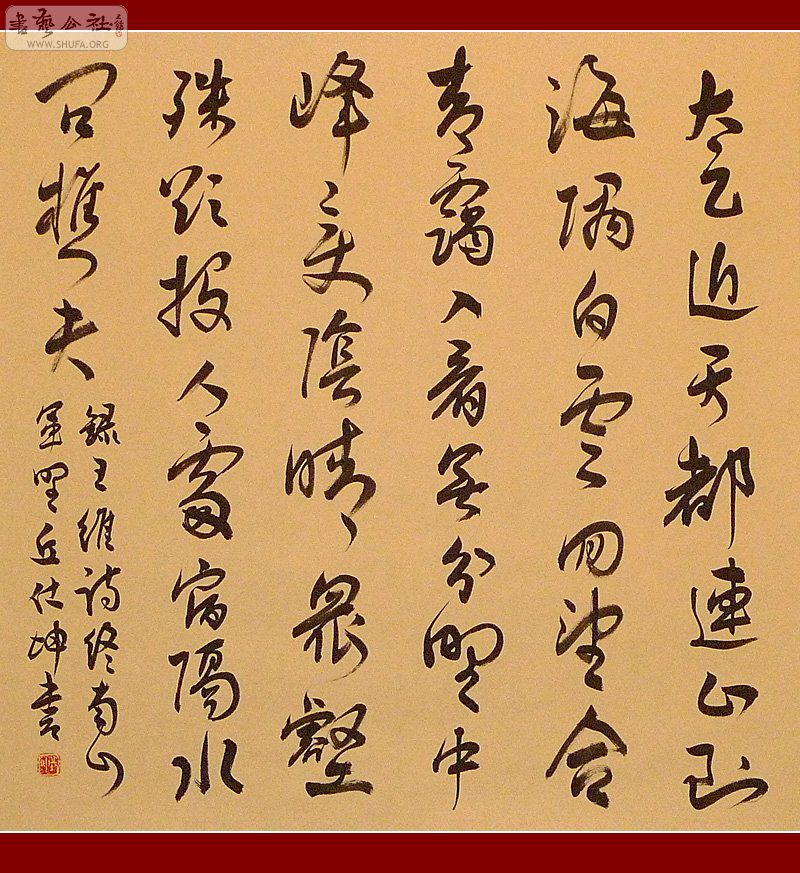 書藝公社
WWW.SHUFA.ORG
太乙近天都連山到
海隅白雲回望合
青靄入看無分野中
峰變陰晴眾壑
殊欲投人處宿隔水
問樵夫
錄王維詩終南山
野丘仕坤書